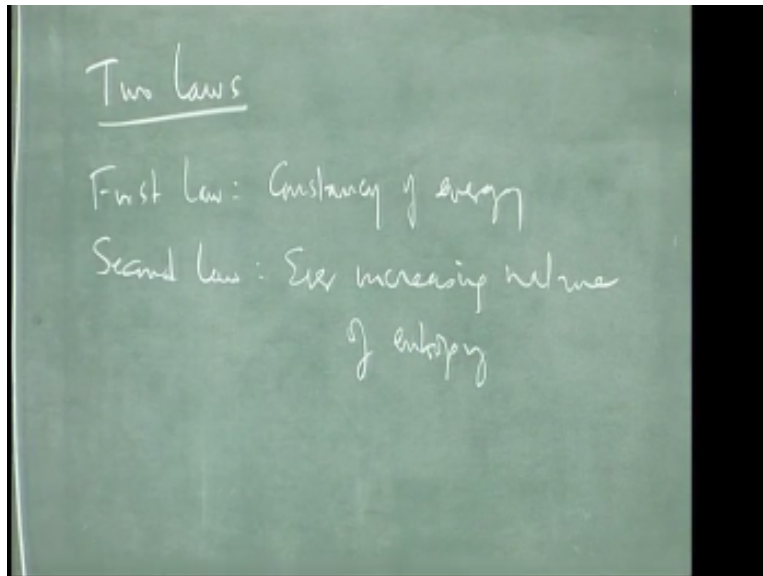 Two Laws
First Law: Constancy of energy
Second Law: Ever increasing nature
of entropy